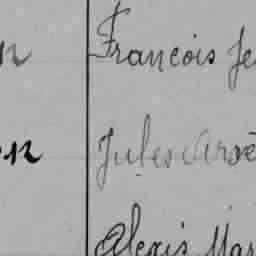 François Je
Jules Arsè
Alexis Mar